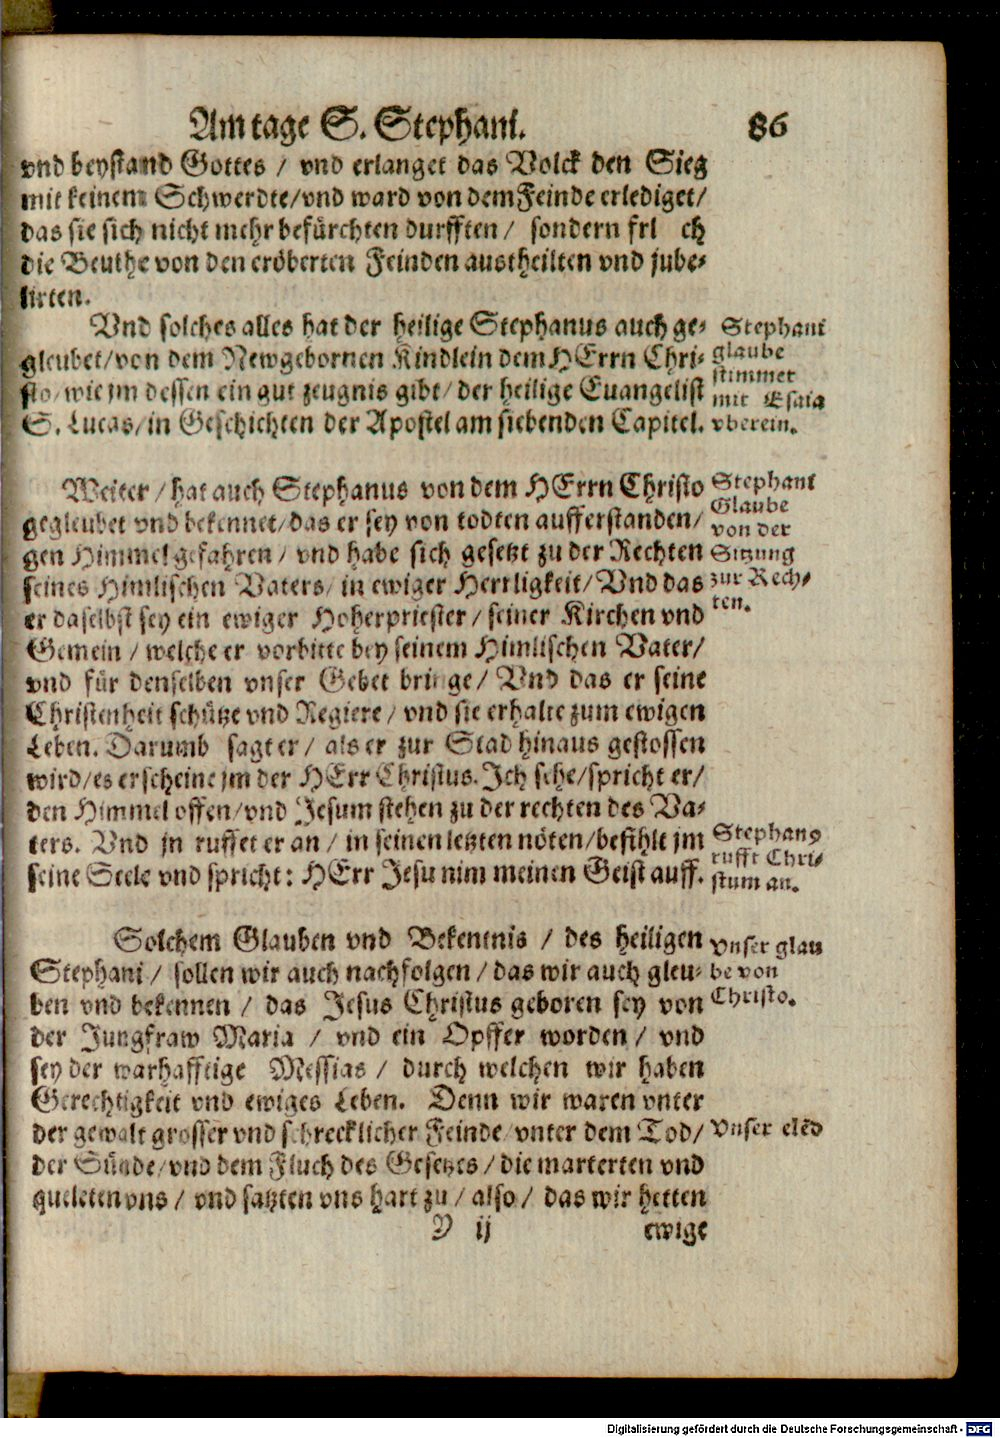 Am tage S. Stephani. 86
vnd beystand Gottes / vnd erlanget das Volck den Sieg
mit keinem Schwerdte/vnd ward von dem Feinde erlediget/
das sie sich nicht mehr befürchten durfften / sondern frl ch
die Beuthe von den eröberten Feinden austheilten vnd jube-
lirten.
Vnd solches alles hat der heilige Stephanus auch ge-
gleubet/von dem Newgebornen Kindlein dem HErrn Chri-
sto/wie jm dessen ein gut zeugnis gibt/der heilige Euangelist
S. Lucas/in Geschichten der Apostel am siebenden Capitel.
Stephani
glaube
stimmet
mit Esaia
vberein.
Weiter / hat auch Stephanus von dem HErrn Christo
gegleubet vnd bekennet/das er sey von todten aufferstanden/
gen Himmel gefahren / vnd habe sich gesetzt zu der Rechten
seines Himlischen Vaters/ in ewiger Herrligkeit/Vnd das
er daselbst sey ein ewiger Hoherpriester / seiner Kirchen vnd
Gemein / welche er vorbitte bey seinem Himlischen Vater/
vnd für denselben vnser Gebet bringe / Vnd das er seine
Christenheit schütze vnd Regiere / vnd sie erhalte zum ewigen
Leben. Darumb sagt er / als er zur Stad hinaus gestossen
wird/es erscheine jm der HErr Christus. Ich sehe/spricht er/
den Himmel offen/vnd Jesum stehen zu der rechten des Va-
ters. Vnd jn ruffet er an / in seinen letzten nöten/befihlt jm
seine Seele vnd spricht: HErr Jesu nim meinen Geist auff.
Stephani
Glaube
von der
Sitzung
zur Rech-
ten.
Stephanus
rufft Chri-
stum an.
Solchem Glauben vnd Bekentnis / des heiligen
Stephani / sollen wir auch nachfolgen / das wir auch gleu-
ben vnd bekennen / das Jesus Christus geboren sey von
der Jungfraw Maria / vnd ein Opffer worden / vnd
sey der warhafftige Messias / durch welchen wir haben
Gerechtigkeit vnd ewiges Leben. Denn wir waren vnter
der gewalt grosser vnd schrecklicher Feinde/vnter dem Tod/
der Sünde/vnd dem Fluch des Gesetzes / die marterten vnd
queleten vns / vnd satzten vns hart zu / also / das wir hetten
Vnser glau
be von
Christo.
Vnser elēd
Y ij ewige
Digitalisierung gefördert durch die Deutsche Forschungsgemeinschaft - DFG